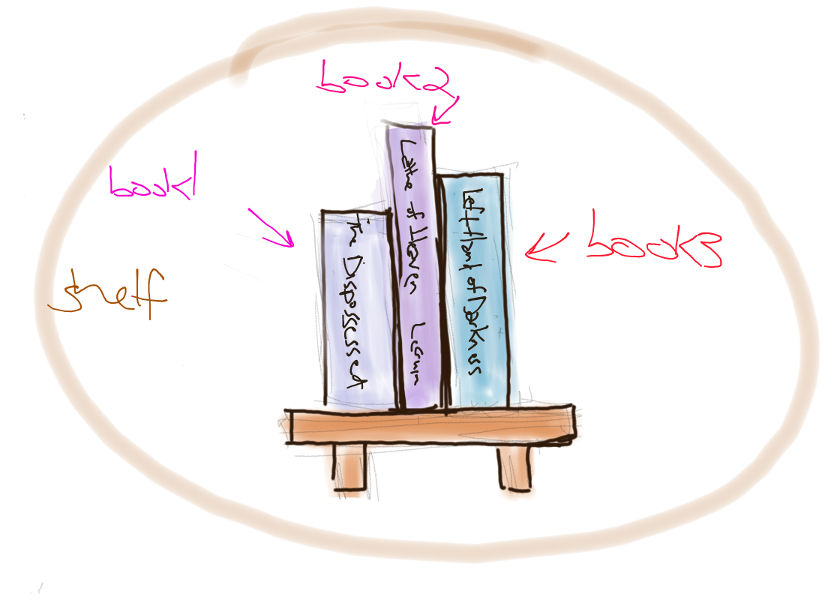 book2
book1
shelf
The Dispossessed
Lathe of Heven Leguin
Left Hand of Darkness
book3